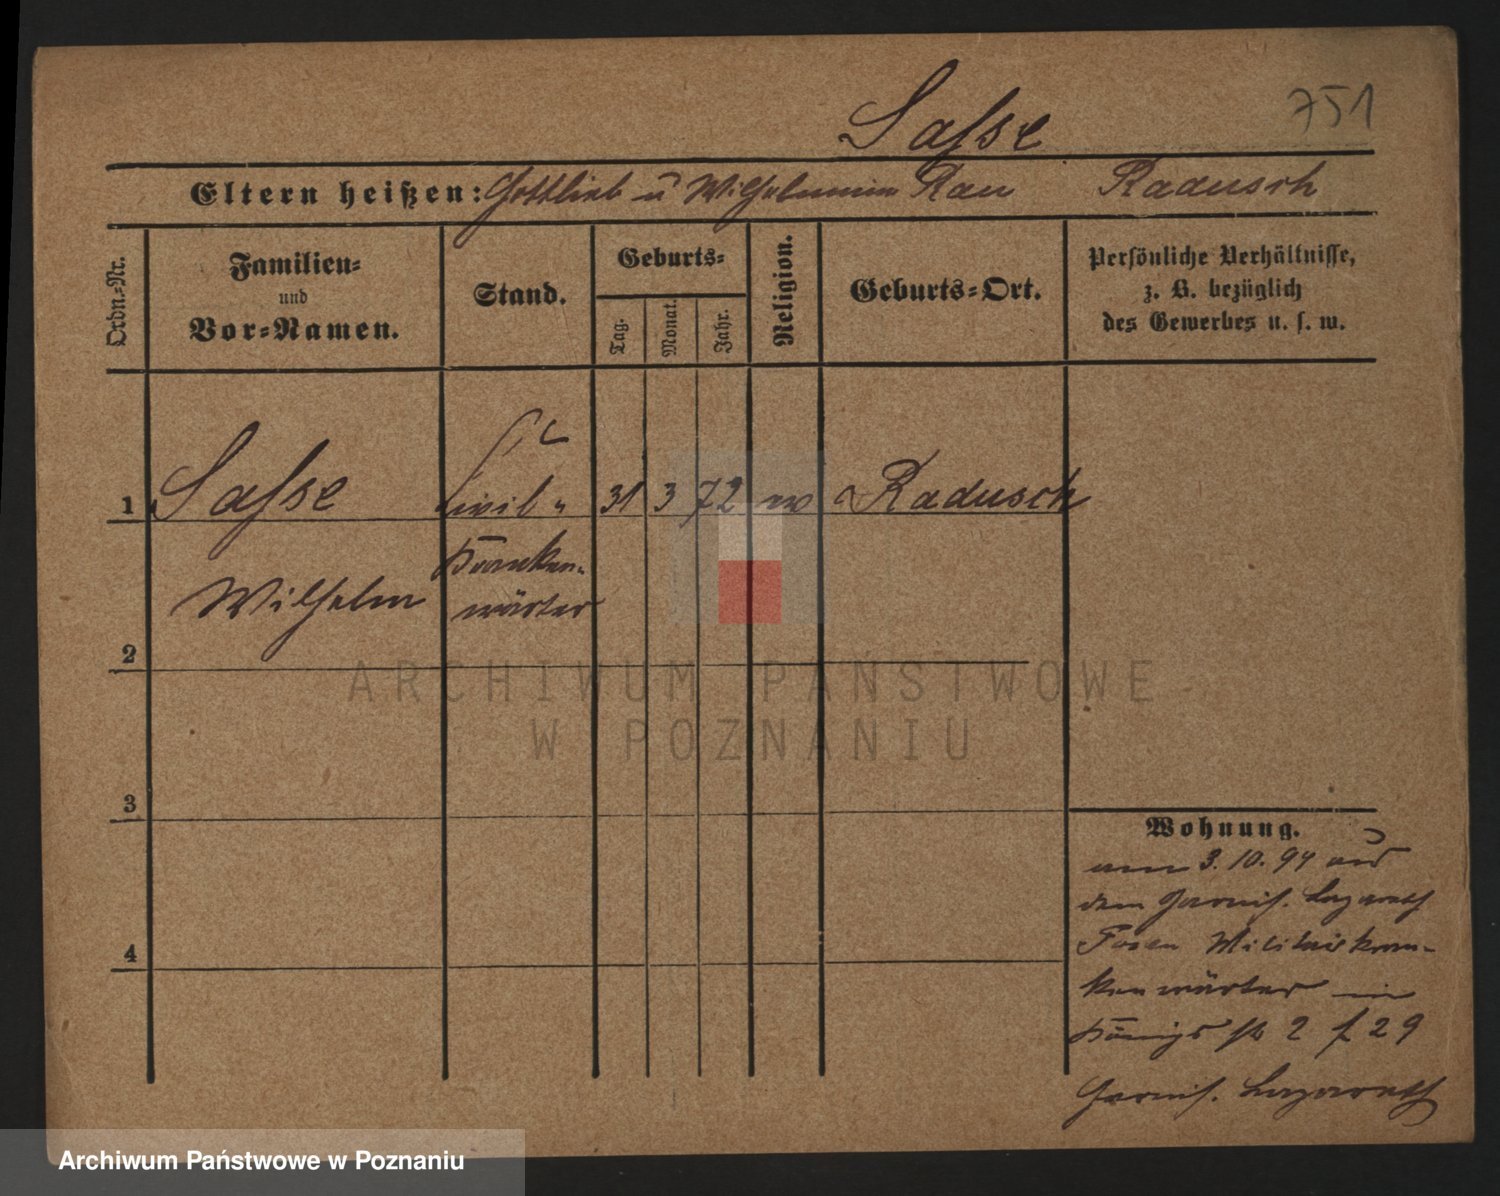 751
Sasse
Eltern heißen: Gottlieb u Wilhelmine Rau Radusch
Ordn.-Nr.
Familien-
und
Vor-Namen.
Stand.
Geburts-
Tag.
Monat.
Jahr.
Religion.
Geburts-Ort.
Persönliche Verhältnisse,
z. B. bezüglich
des Gewerbes u. s. w.
1 Sasse Civil- 31 3 72 Radusch
Kranken-
Wilhelm wärter
2
3
4
Wohnung.
am 3. 10. 94 aus
dem Garnis. Lazareth
Posen Militairkran-
kenwärter in
Königs str 2 f 29
Garnis. Lazareth
ARCHIWUM PAŃSTWOWE
W POZNANIU
Archiwum Państwowe w Poznaniu